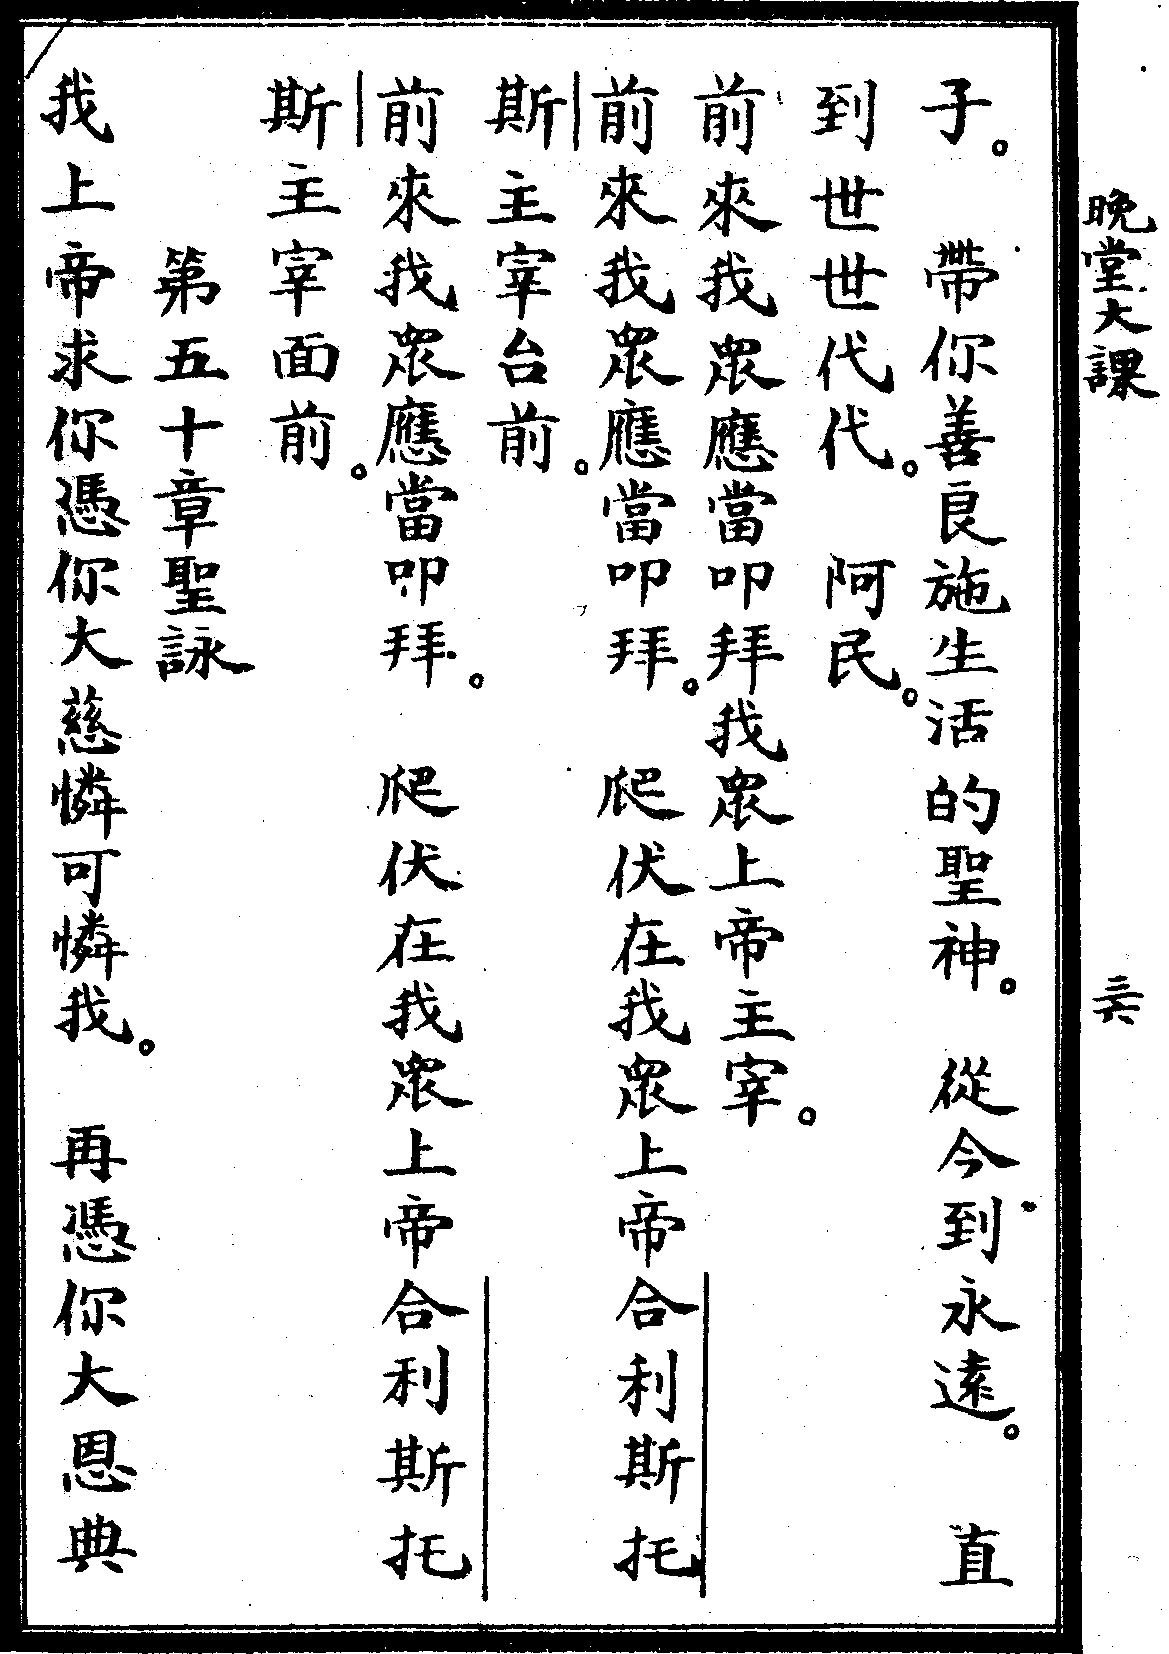 晚堂大課
三六
子。帶你善良施生活的聖神。從今到永遠。直
到世世代代。阿民。
前來我眾應當叩拜我眾上帝主宰。
前來我眾應當叩拜。爬伏在我眾上帝合利斯托
斯主宰台前。
前來我眾應當叩拜。爬伏在我眾上帝合利斯托
斯主宰面前。
第五十章聖詠
我上帝求你憑你大慈憐可憐我。再憑你大恩典